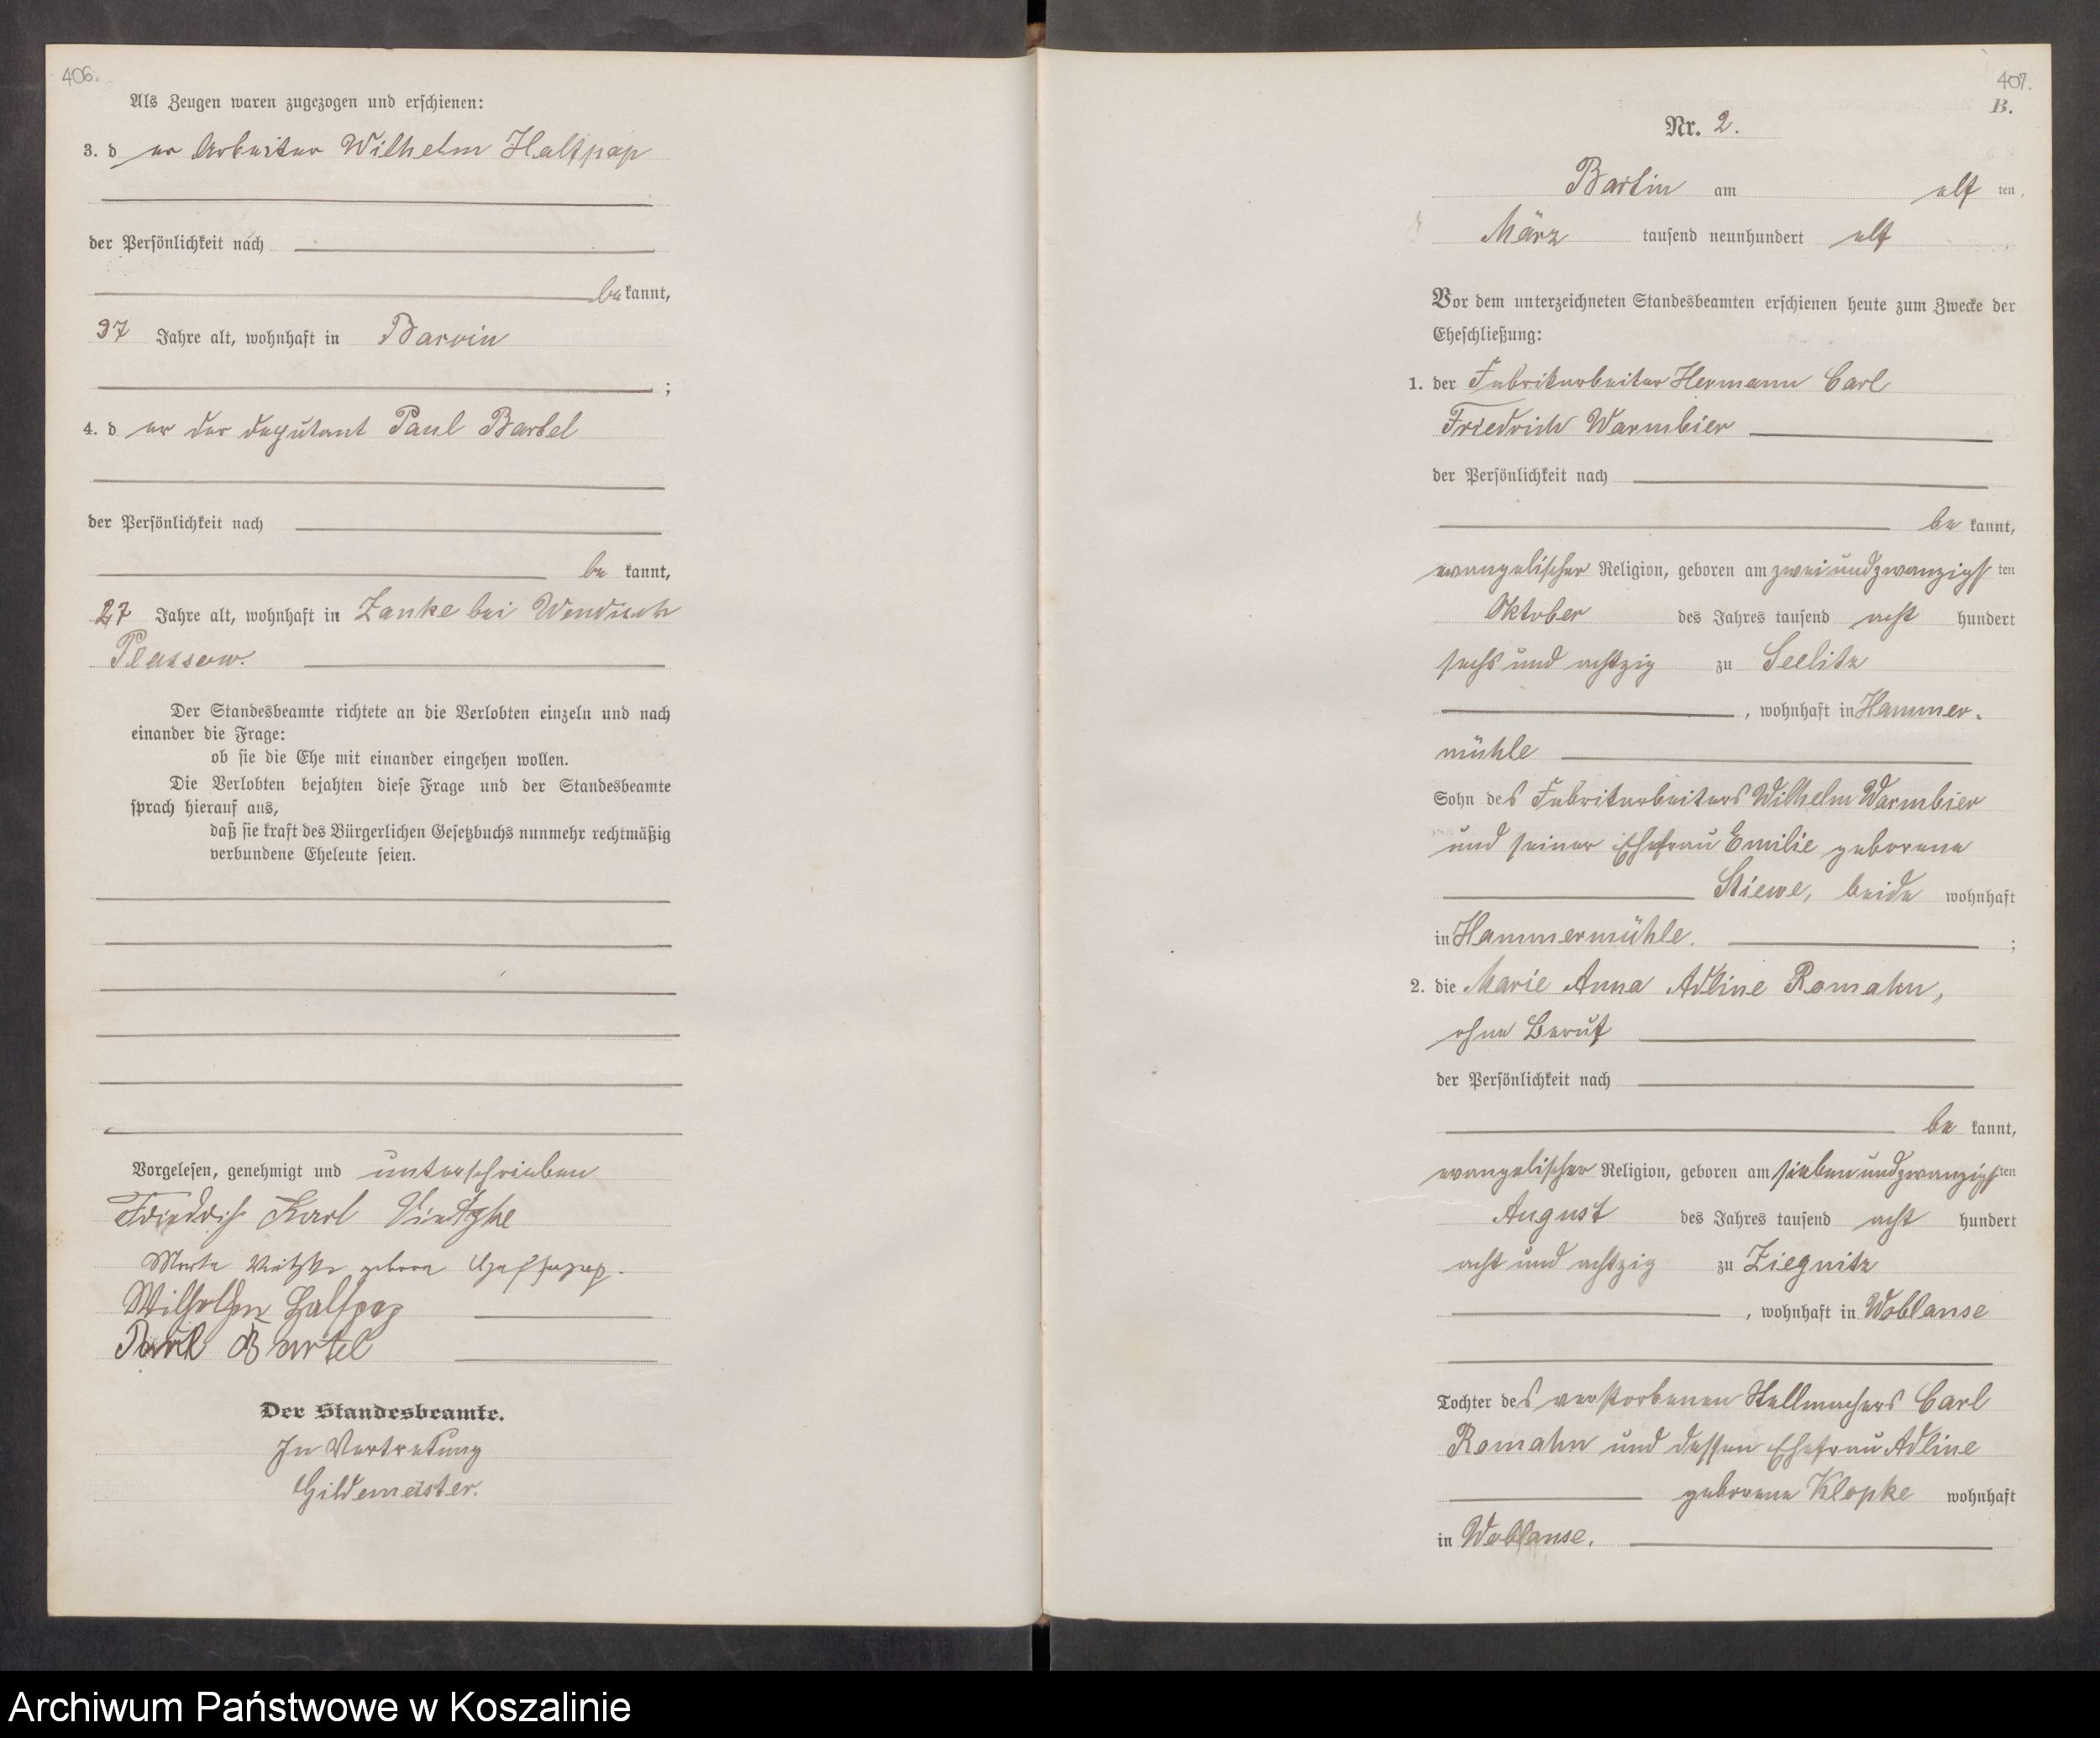 406.
Als Zeugen waren zugezogen und erschienen:
3. d er Arbeiter Wilhelm Halfpap
der Persönlichkeit nach
be kannt,
37 Jahre alt, wohnhaft in Barvin
;
4. d er der Deputant Paul Bartel
der Persönlichkeit nach
be kannt,
27 Jahre alt, wohnhaft in Zanke bei Wendisch
Plassow.
Der Standesbeamte richtete an die Verlobten einzeln und nach
einander die Frage:
ob sie die Ehe mit einander eingehen wollen.
Die Verlobten bejahten diese Frage und der Standesbeamte
sprach hierauf aus,
daß sie kraft des Bürgerlichen Gesetzbuchs nunmehr rechtmäßig
verbundene Eheleute seien.
Vorgelesen, genehmigt und unterschrieben
Friedrich Karl
Wilhelm Halfpap
Paul Bartel
Der Standesbeamte.
In Vertretung
Gildemeister.
407.
B.
Nr. 2.
Bartin am elf ten
März tausend neunhundert elf
Vor dem unterzeichneten Standesbeamten erschienen heute zum Zwecke der
Eheschließung:
1. der Fabrikarbeiter Hermann Carl
Friedrich Warmbier
der Persönlichkeit nach
be kannt,
evangelischer Religion, geboren am zwei und zwanzigs ten
Oktober des Jahres tausend acht hundert
sechs und achtzig zu Seelitz
, wohnhaft in Hammer-
mühle
Sohn des Fabrikarbeiters Wilhelm Warmbier
und seiner Ehefrau Emilie geborene
Stiewe, beide wohnhaft
in Hammermühle. ;
2. die Marie Anna Adline Romahn,
ohne Beruf
der Persönlichkeit nach
be kannt,
evangelischer Religion, geboren am sieben und zwanzigs ten
August des Jahres tausend acht hundert
acht und achtzig zu Ziegnitz
, wohnhaft in Woblanse
Tochter des verstorbenen Stellmachers Carl
Romahn und dessen Ehefrau Adline
geborene Klopke wohnhaft
in Woblanse.
Archiwum Państwowe w Koszalinie